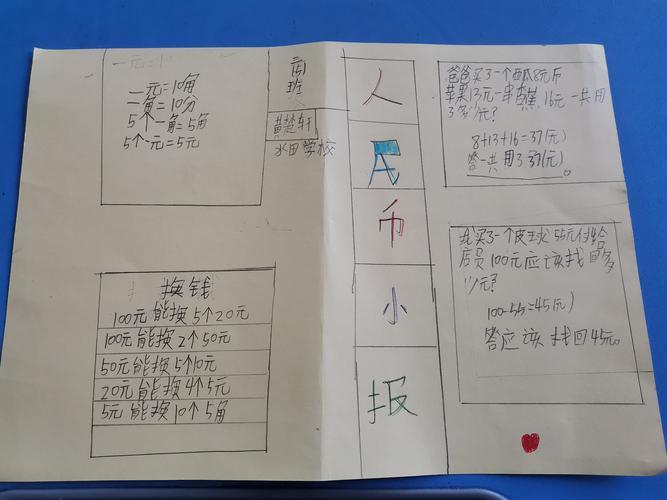 一元=10
一元=10角
一角=10分
5个一角=5角
5个一元=5元
换钱
100元能换5个20元
100元能换2个50元
50元能换5个10元
20元能换4个5元
5元能换10个5角
班
黄楚轩
水田学校
人
民
币
小
报
爸爸买了一个西瓜8元
苹果13元一串香蕉16元一共用
了多少元?
8+13+16=37(元)
答一共用了37(元)。
我买了一个皮球55元付给
店员100元应该找回多
少元?
100-55=45(元)
答应该找回45元。